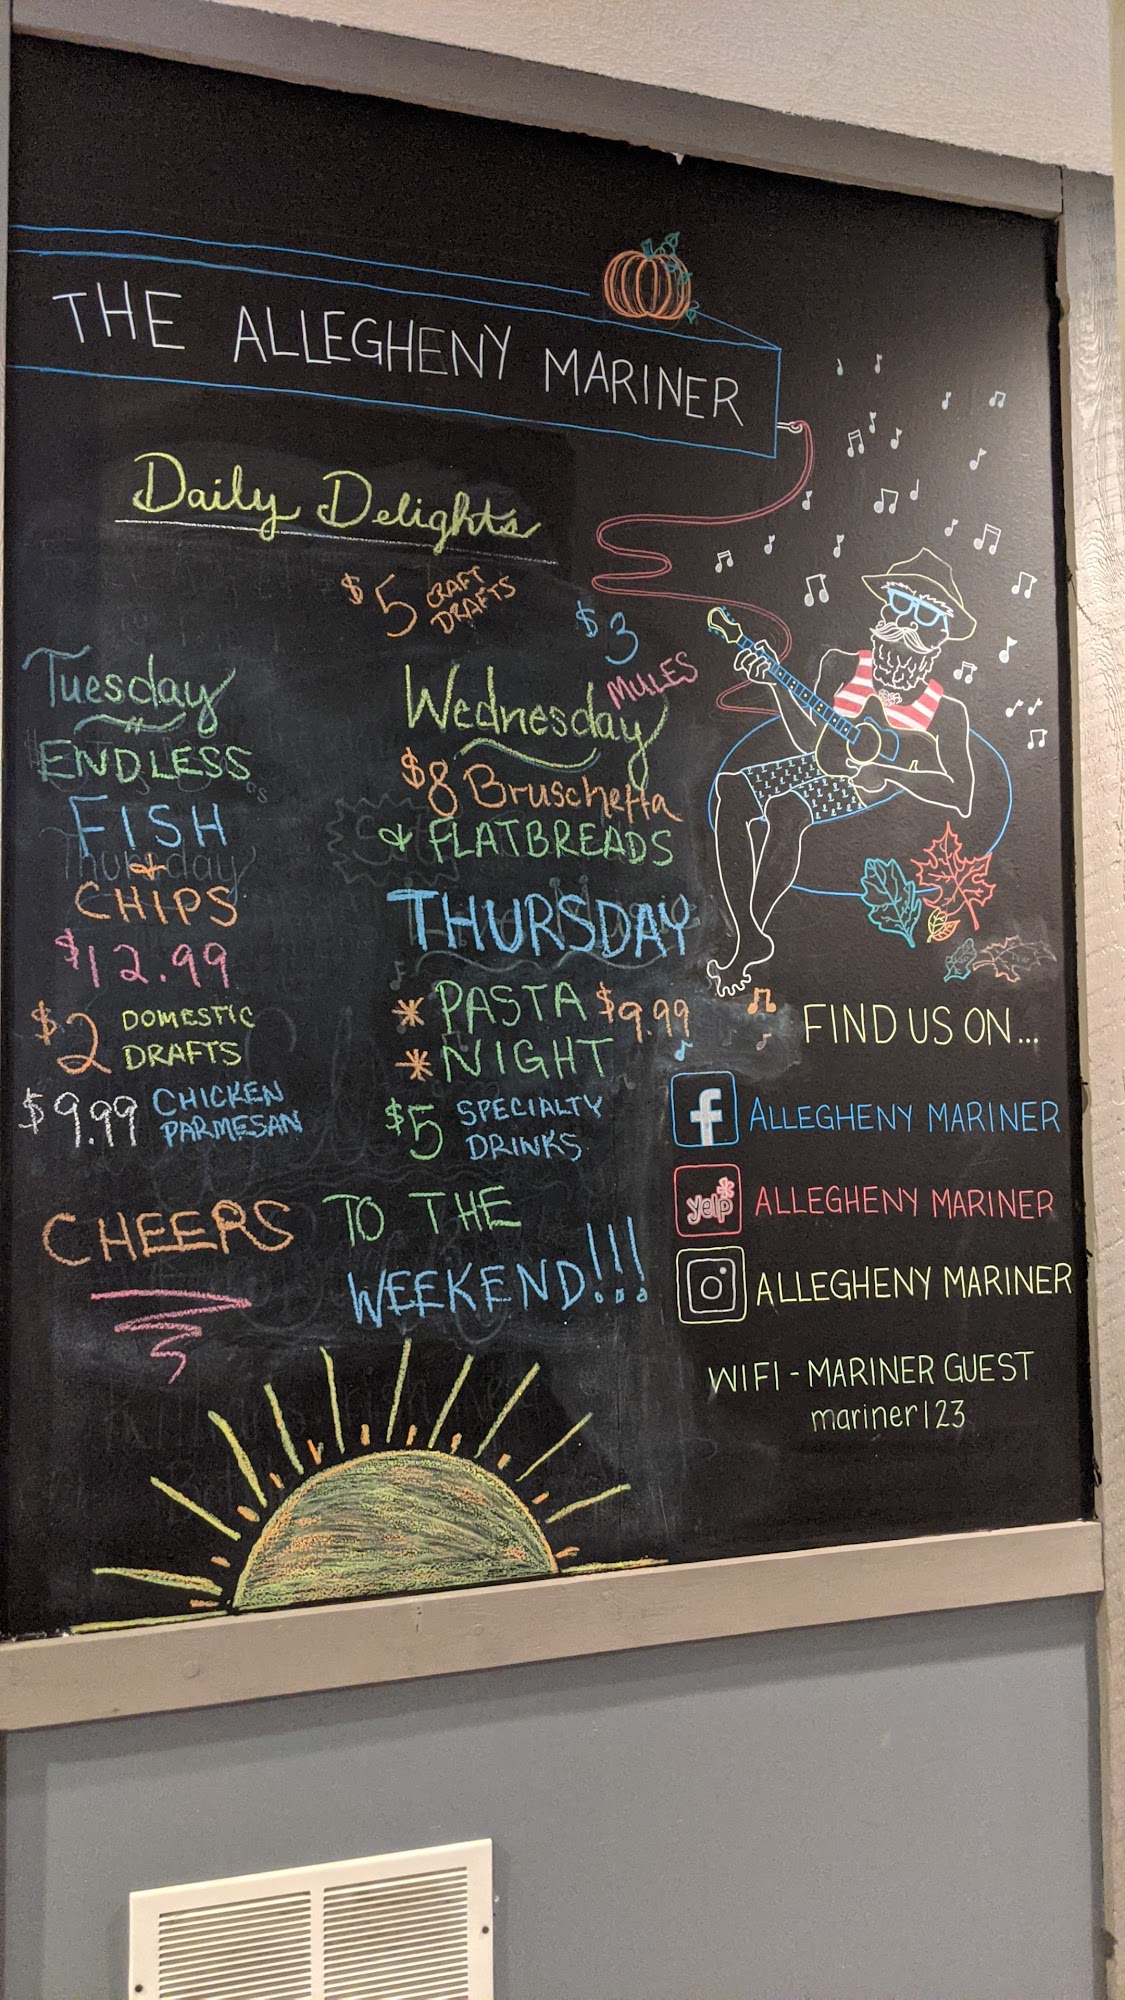 THE ALLEGHENY MARINER
Daily Delights
$5 CRAFT
DRAFTS
$3
MULES
Tuesday
ENDLESS
FISH
&
CHIPS
$12.99
$2 DOMESTIC
DRAFTS
$9.99 CHICKEN
PARMESAN
Wednesday
$8 Bruschetta
& FLATBREADS
THURSDAY
* PASTA $9.99
* NIGHT
$5 SPECIALTY
DRINKS
CHEERS TO THE
WEEKEND!!!
FIND US ON...
f ALLEGHENY MARINER
yelp ALLEGHENY MARINER
ALLEGHENY MARINER
WIFI - MARINER GUEST
mariner123